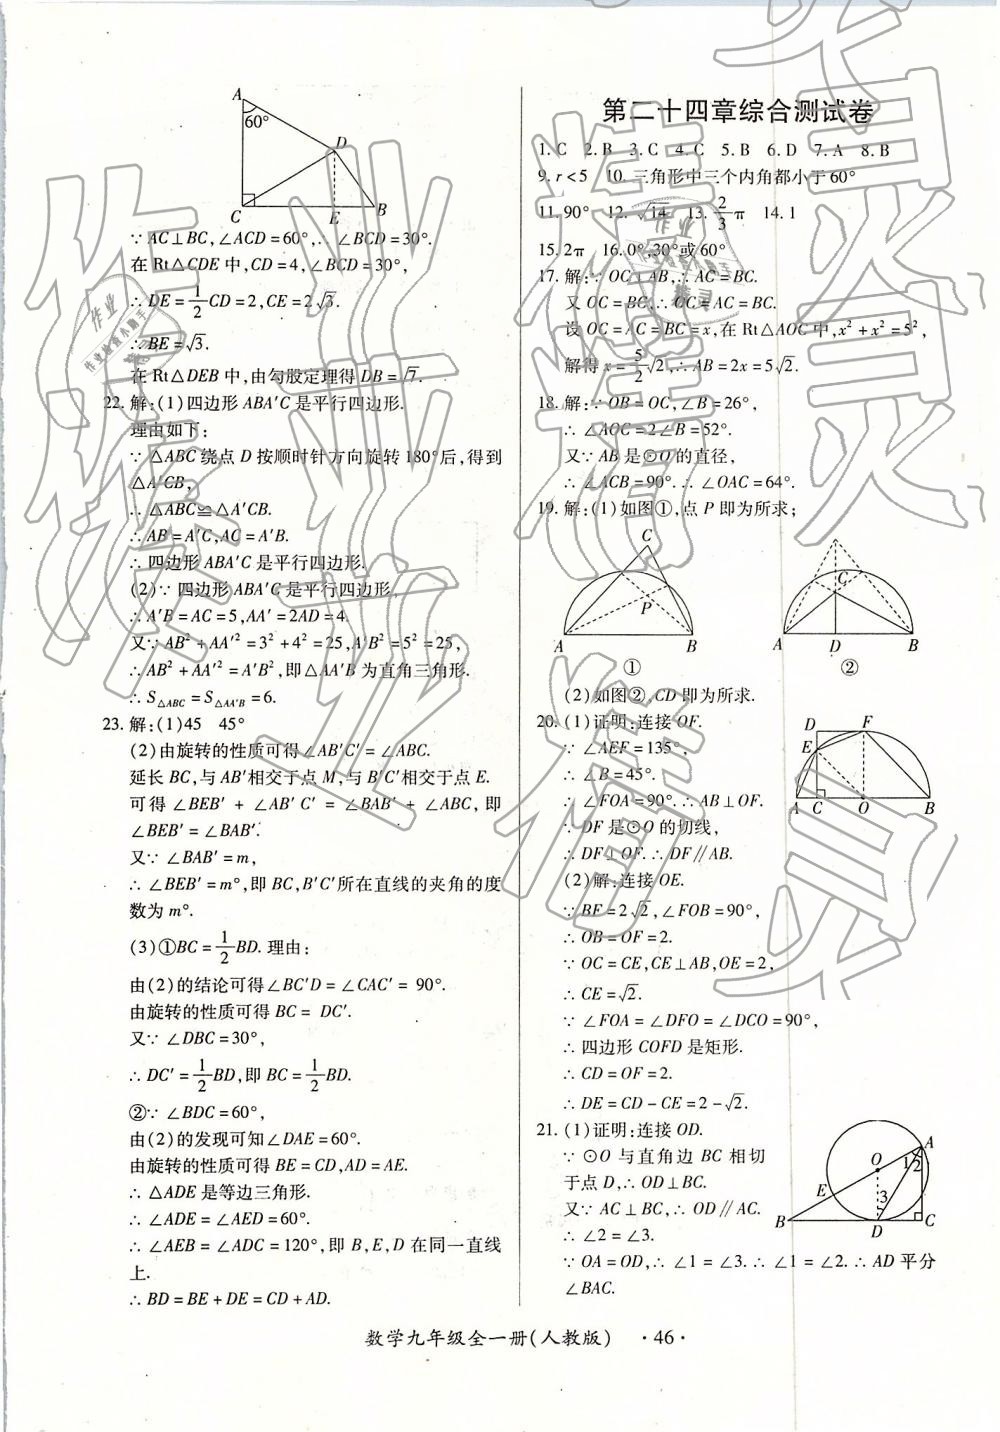 A
60°
D
C
E
B
∵ AC⊥BC,∠ACD=60°,∴ ∠BCD=30°.
在 Rt△CDE 中,CD=4,∠BCD=30°,
∴ DE=1/2CD=2,CE=2√3.
∴ BE=√3.
在 Rt△DEB 中,由勾股定理得 DB=√7.
22. 解:(1)四边形 ABA′C 是平行四边形.
理由如下:
∵ △ABC 绕点 D 按顺时针方向旋转 180°后,得到
△A′CB,
∴ △ABC≌△A′CB.
∴ AB=A′C,AC=A′B.
∴ 四边形 ABA′C 是平行四边形.
(2)∵ 四边形 ABA′C 是平行四边形,
∴ A′B=AC=5,AA′=2AD=4.
又∵ AB²+AA′²=3²+4²=25,A′B²=5²=25,
∴ AB²+AA′²=A′B²,即△AA′B 为直角三角形.
∴ S△ABC=S△AA′B=6.
23. 解:(1)45 45°
(2)由旋转的性质可得∠AB′C′=∠ABC.
延长 BC,与 AB′相交于点 M,与 B′C′相交于点 E.
可得 ∠BEB′ + ∠AB′C′ = ∠BAB′ + ∠ABC,即
∠BEB′=∠BAB′.
又∵ ∠BAB′=m,
∴ ∠BEB′=m°,即 BC,B′C′所在直线的夹角的度
数为 m°.
(3)①BC=1/2BD. 理由:
由(2)的结论可得∠BC′D=∠CAC′= 90°.
由旋转的性质可得 BC= DC′.
又∵ ∠DBC=30°,
∴ DC′=1/2BD,即 BC=1/2BD.
②∵ ∠BDC=60°,
由(2)的发现可知∠DAE=60°.
由旋转的性质可得 BE=CD,AD=AE.
∴ △ADE 是等边三角形.
∴ ∠ADE=∠AED=60°.
∴ ∠AEB=∠ADC=120°,即 B,E,D 在同一直线
上.
∴ BD=BE+DE=CD+AD.
第二十四章综合测试卷
1. C 2. B 3. C 4. C 5. B 6. D 7. A 8. B
9. r<5 10. 三角形中三个内角都小于 60°
11. 90° 12. √14 13. 2/3π 14. 1
15. 2π 16. 0°,30°或 60°
17. 解:∵ OC⊥AB,∴ AC=BC.
又 OC=BC,∴ OC=AC=BC.
设 OC=AC=BC=x,在 Rt△AOC 中,x²+x²=5²,
解得 x=5/2√2,∴ AB=2x=5√2.
18. 解:∵ OB=OC,∠B=26°,
∴ ∠AOC=2∠B=52°.
又∵ AB 是⊙O 的直径,
∴ ∠ACB=90°.∴ ∠OAC=64°.
19. 解:(1)如图①,点 P 即为所求;
C
P
A
B
①
C
A
D
B
②
(2)如图②,CD 即为所求.
20. (1)证明:连接 OF.
∵ ∠AEF=135°,
∴ ∠B=45°.
∴ ∠FOA=90°.∴ AB⊥OF.
∵ DF 是⊙O 的切线,
∴ DF⊥OF.∴ DF∥AB.
D
F
E
A
C
O
B
(2)解:连接 OE.
∵ BF=2√2,∠FOB=90°,
∴ OB=OF=2.
∵ OC=CE,CE⊥AB,OE=2,
∴ CE=√2.
∵ ∠FOA=∠DFO=∠DCO=90°,
∴ 四边形 COFD 是矩形.
∴ CD=OF=2.
∴ DE=CD-CE=2-√2.
21. (1)证明:连接 OD.
∵ ⊙O 与直角边 BC 相切
于点 D,∴ OD⊥BC.
又∵ AC⊥BC,∴ OD∥AC.
∴ ∠2=∠3.
A
1
2
O
E
3
B
D
C
∵ OA=OD,∴ ∠1=∠3.∴ ∠1=∠2.∴ AD 平分
∠BAC.
数学九年级全一册(人教版) ·46·